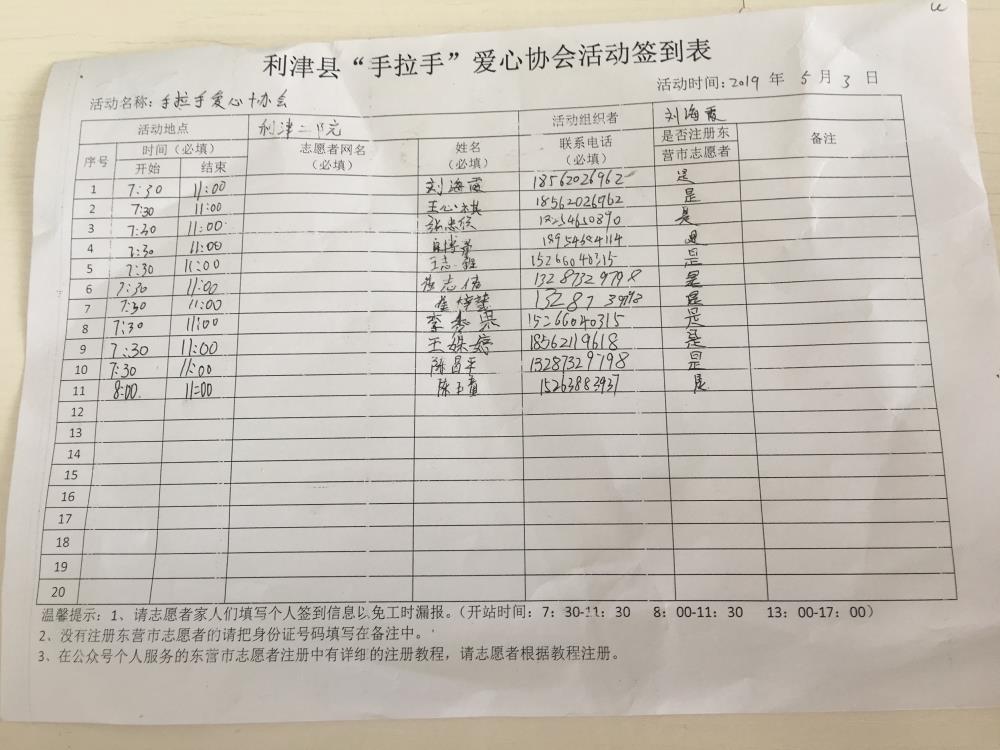 利津县“手拉手”爱心协会活动签到表
活动时间:2019 年 5 月 3 日
活动名称:手拉手爱心协会
活动地点 利津二 活动组织者 刘海霞
序号 时间(必填) 志愿者网名(必填) 姓名(必填) 联系电话(必填) 是否注册东营市志愿者 备注
开始 结束
1 7:30 11:00 刘海霞 18562026962 是
2 7:30 11:00 王心祺 18562026962 是
3 7:30 11:00 是
4 7:30 11:00 是
5 7:30 11:00 王志 15266040315 是
6 7:30 11:00 13287329798 是
7 7:30 11:00 是
8 7:30 11:00 李 15266040315 是
9 7:30 11:00 王 18562119618 是
10 7:30 11:00 陈昌平 13287329798 是
11 8:00 11:00 陈玉 15263883937 是
12
13
14
15
16
17
18
19
20
温馨提示:1、请志愿者家人们填写个人签到信息以免工时漏报。(开站时间:7:30-11:30 8:00-11:30 13:00-17:00)
2、没有注册东营市志愿者的请把身份证号码填写在备注中。
3、在公众号个人服务的东营市志愿者注册中有详细的注册教程,请志愿者根据教程注册。